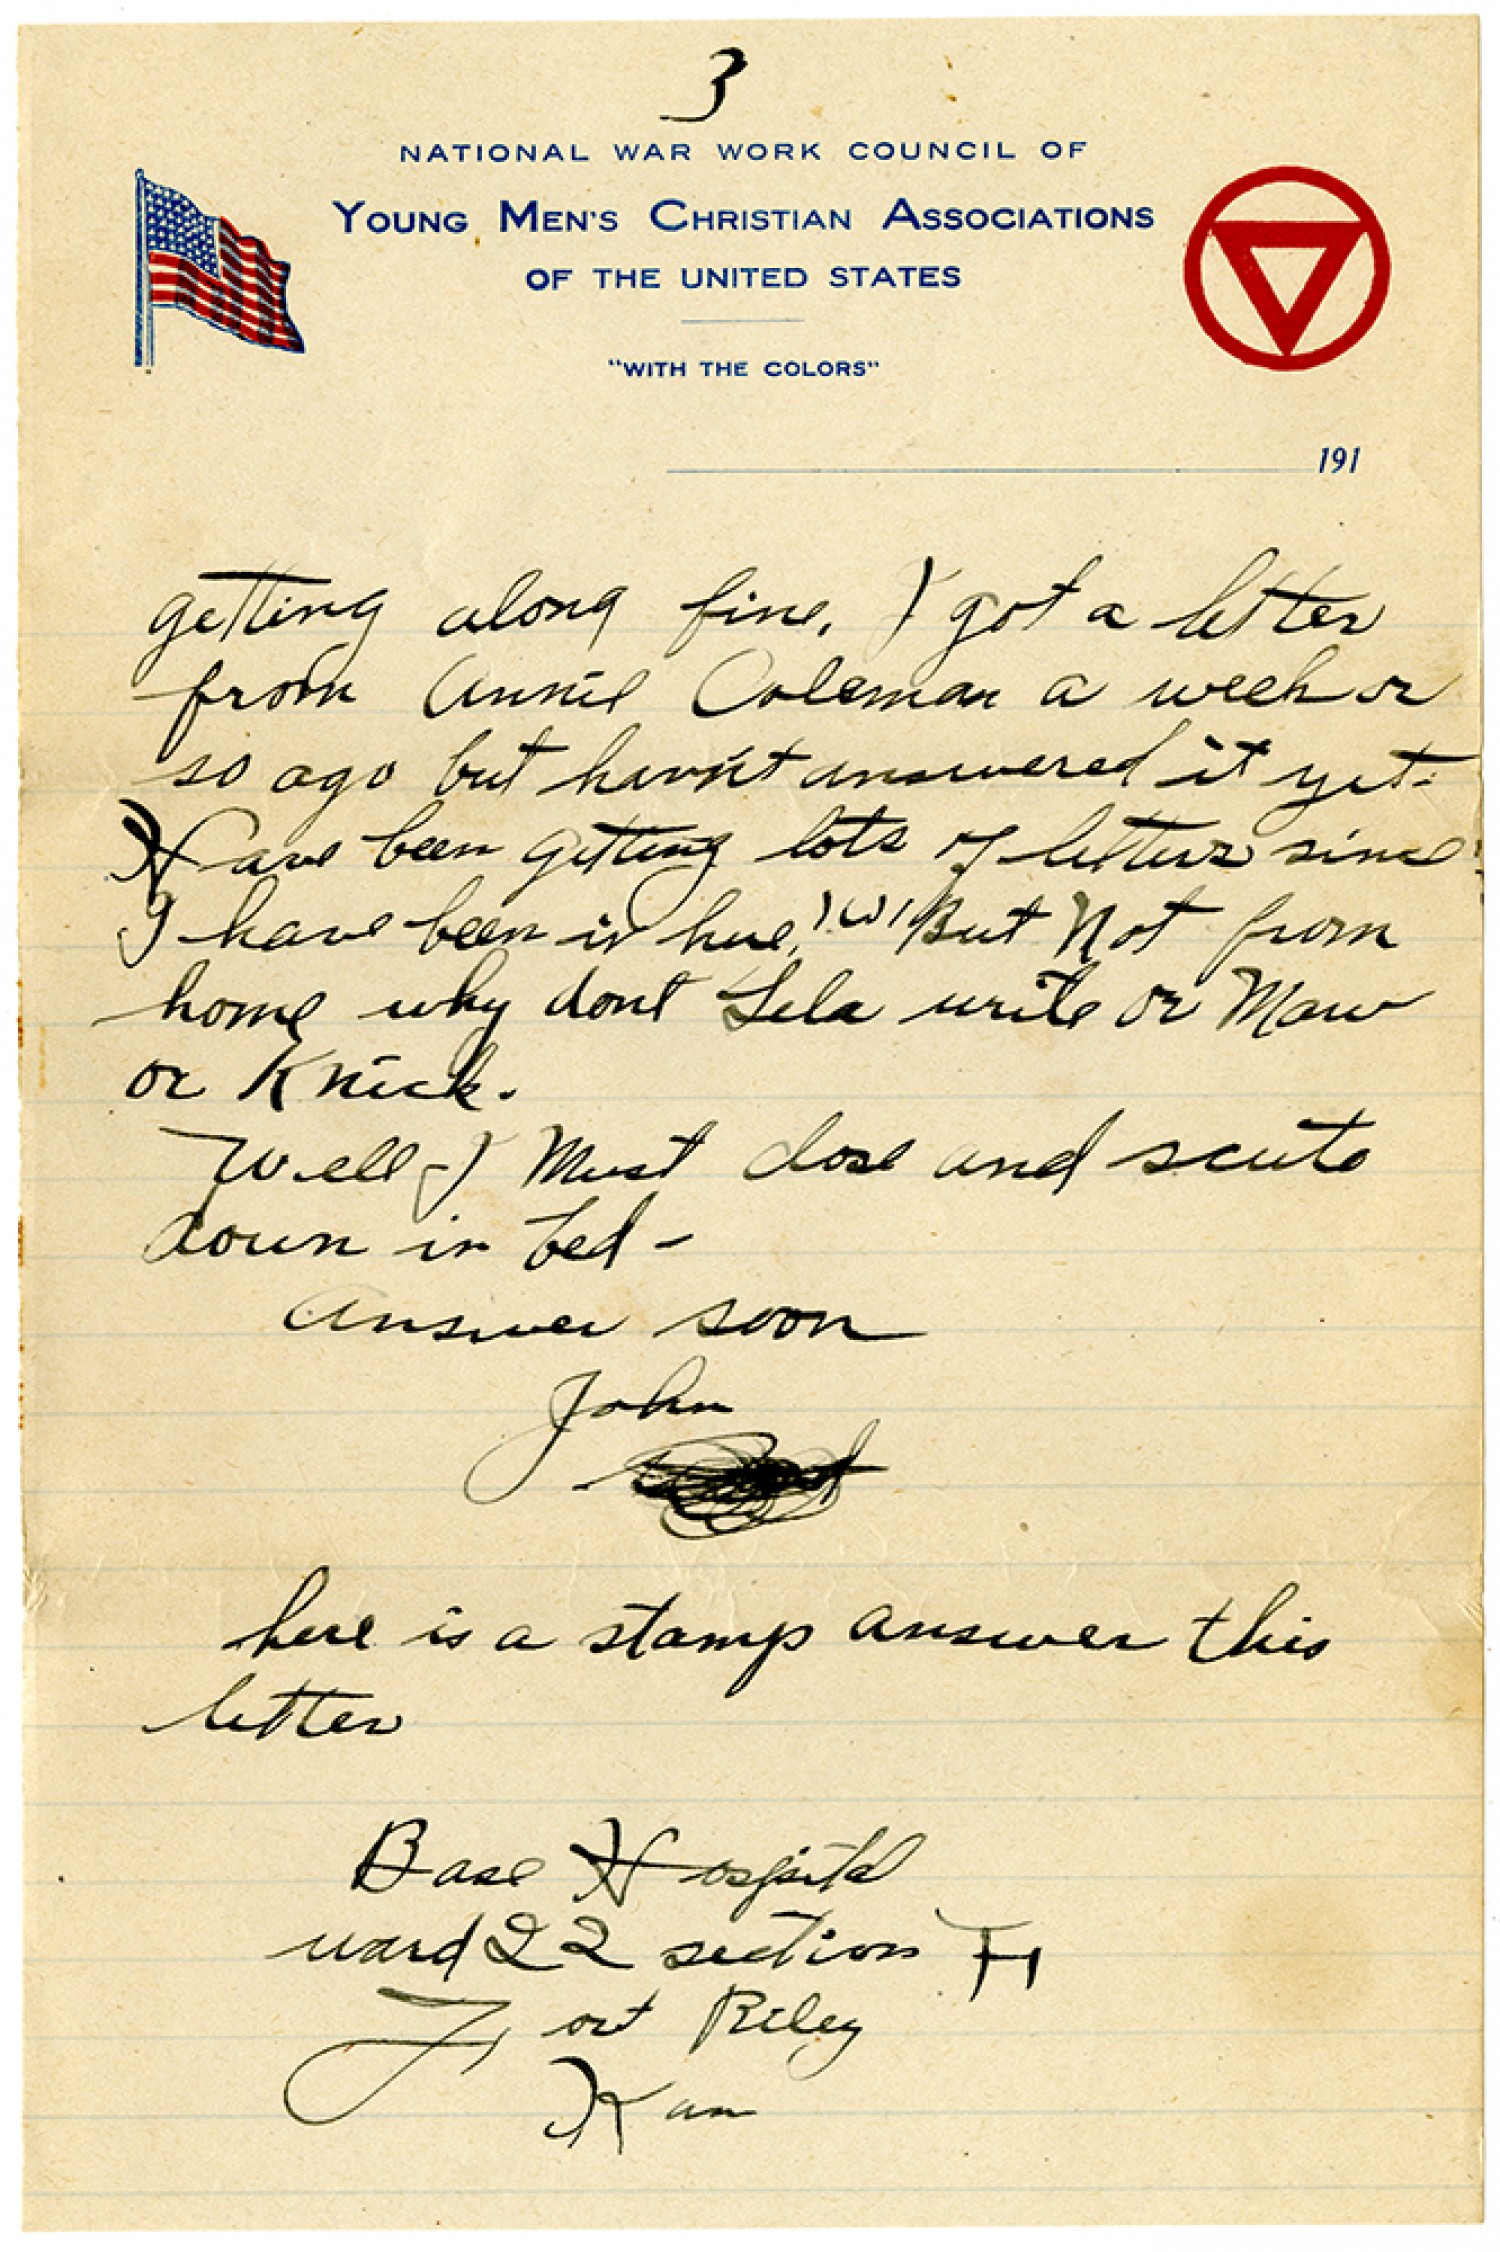 3
NATIONAL WAR WORK COUNCIL OF
YOUNG MEN'S CHRISTIAN ASSOCIATIONS
OF THE UNITED STATES
"WITH THE COLORS"
191
getting along fine. I got a letter
from Annie Coleman a week or
so ago but havn't answered it yet.
Have been getting lots of letters since
I have been in here, But Not from
home why dont Lela write or Maw
or Knick.
Well I Must close and scute
down in bed -
answer soon
John
here is a stamp answer this
letter
Base Hospital
ward 22 section H
Fort Riley
Kan